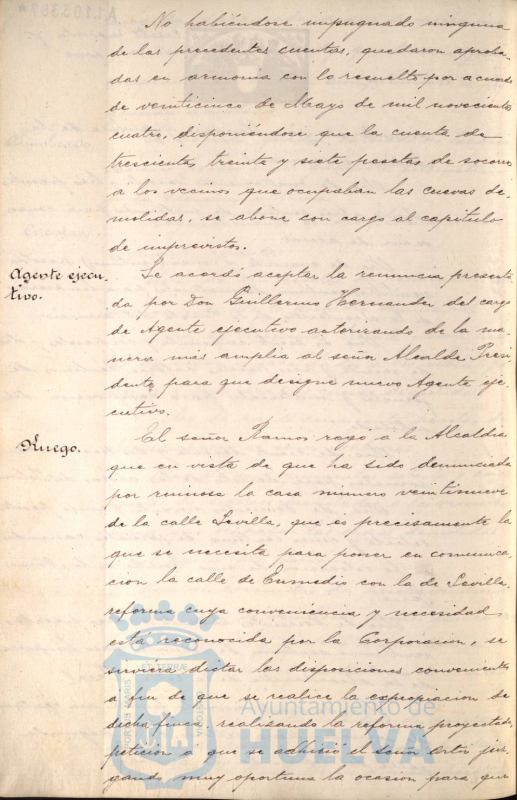 No habiéndose impugnado ninguna
de las precedentes cuentas, quedaron aproba-
das en armonía con lo resuelto por acuerdo
de veinticinco de Mayo de mil novecientos
cuatro, disponiéndose que la cuenta de
trescientas treinta y siete pesetas de socorro
á los vecinos que ocupaban las cuevas de-
molidas, se abone con cargo al capitulo
de imprevistos.
Agente ejecu-
tivo.
Se acordó aceptar la renuncia presenta-
da por Don Guillermo Hernandez del cargo
de Agente ejecutivo autorizando de la ma-
nera más amplia al señor Alcalde Presi-
dente para que designe nuevo Agente eje-
cutivo.
Ruego.
El señor Ramos rogó a la Alcaldia
que en vista de que ha sido denunciada
por ruinosa la casa numero veintinueve
de la calle Sevilla, que es precisamente la
que se necesita para poner en comunica-
cion la calle de Enmedio con la de Sevilla,
reforma cuya conveniencia y necesidad
está reconocida por la Corporacion, se
sirviera dictar las disposiciones convenientes
a fin de que se realice la expropiacion de
dicha finca, realizando la reforma proyectada,
peticion a que se adhirió el señor Ortiz juz-
gando muy oportuna la ocasion para que
Ayuntamiento de
HUELVA